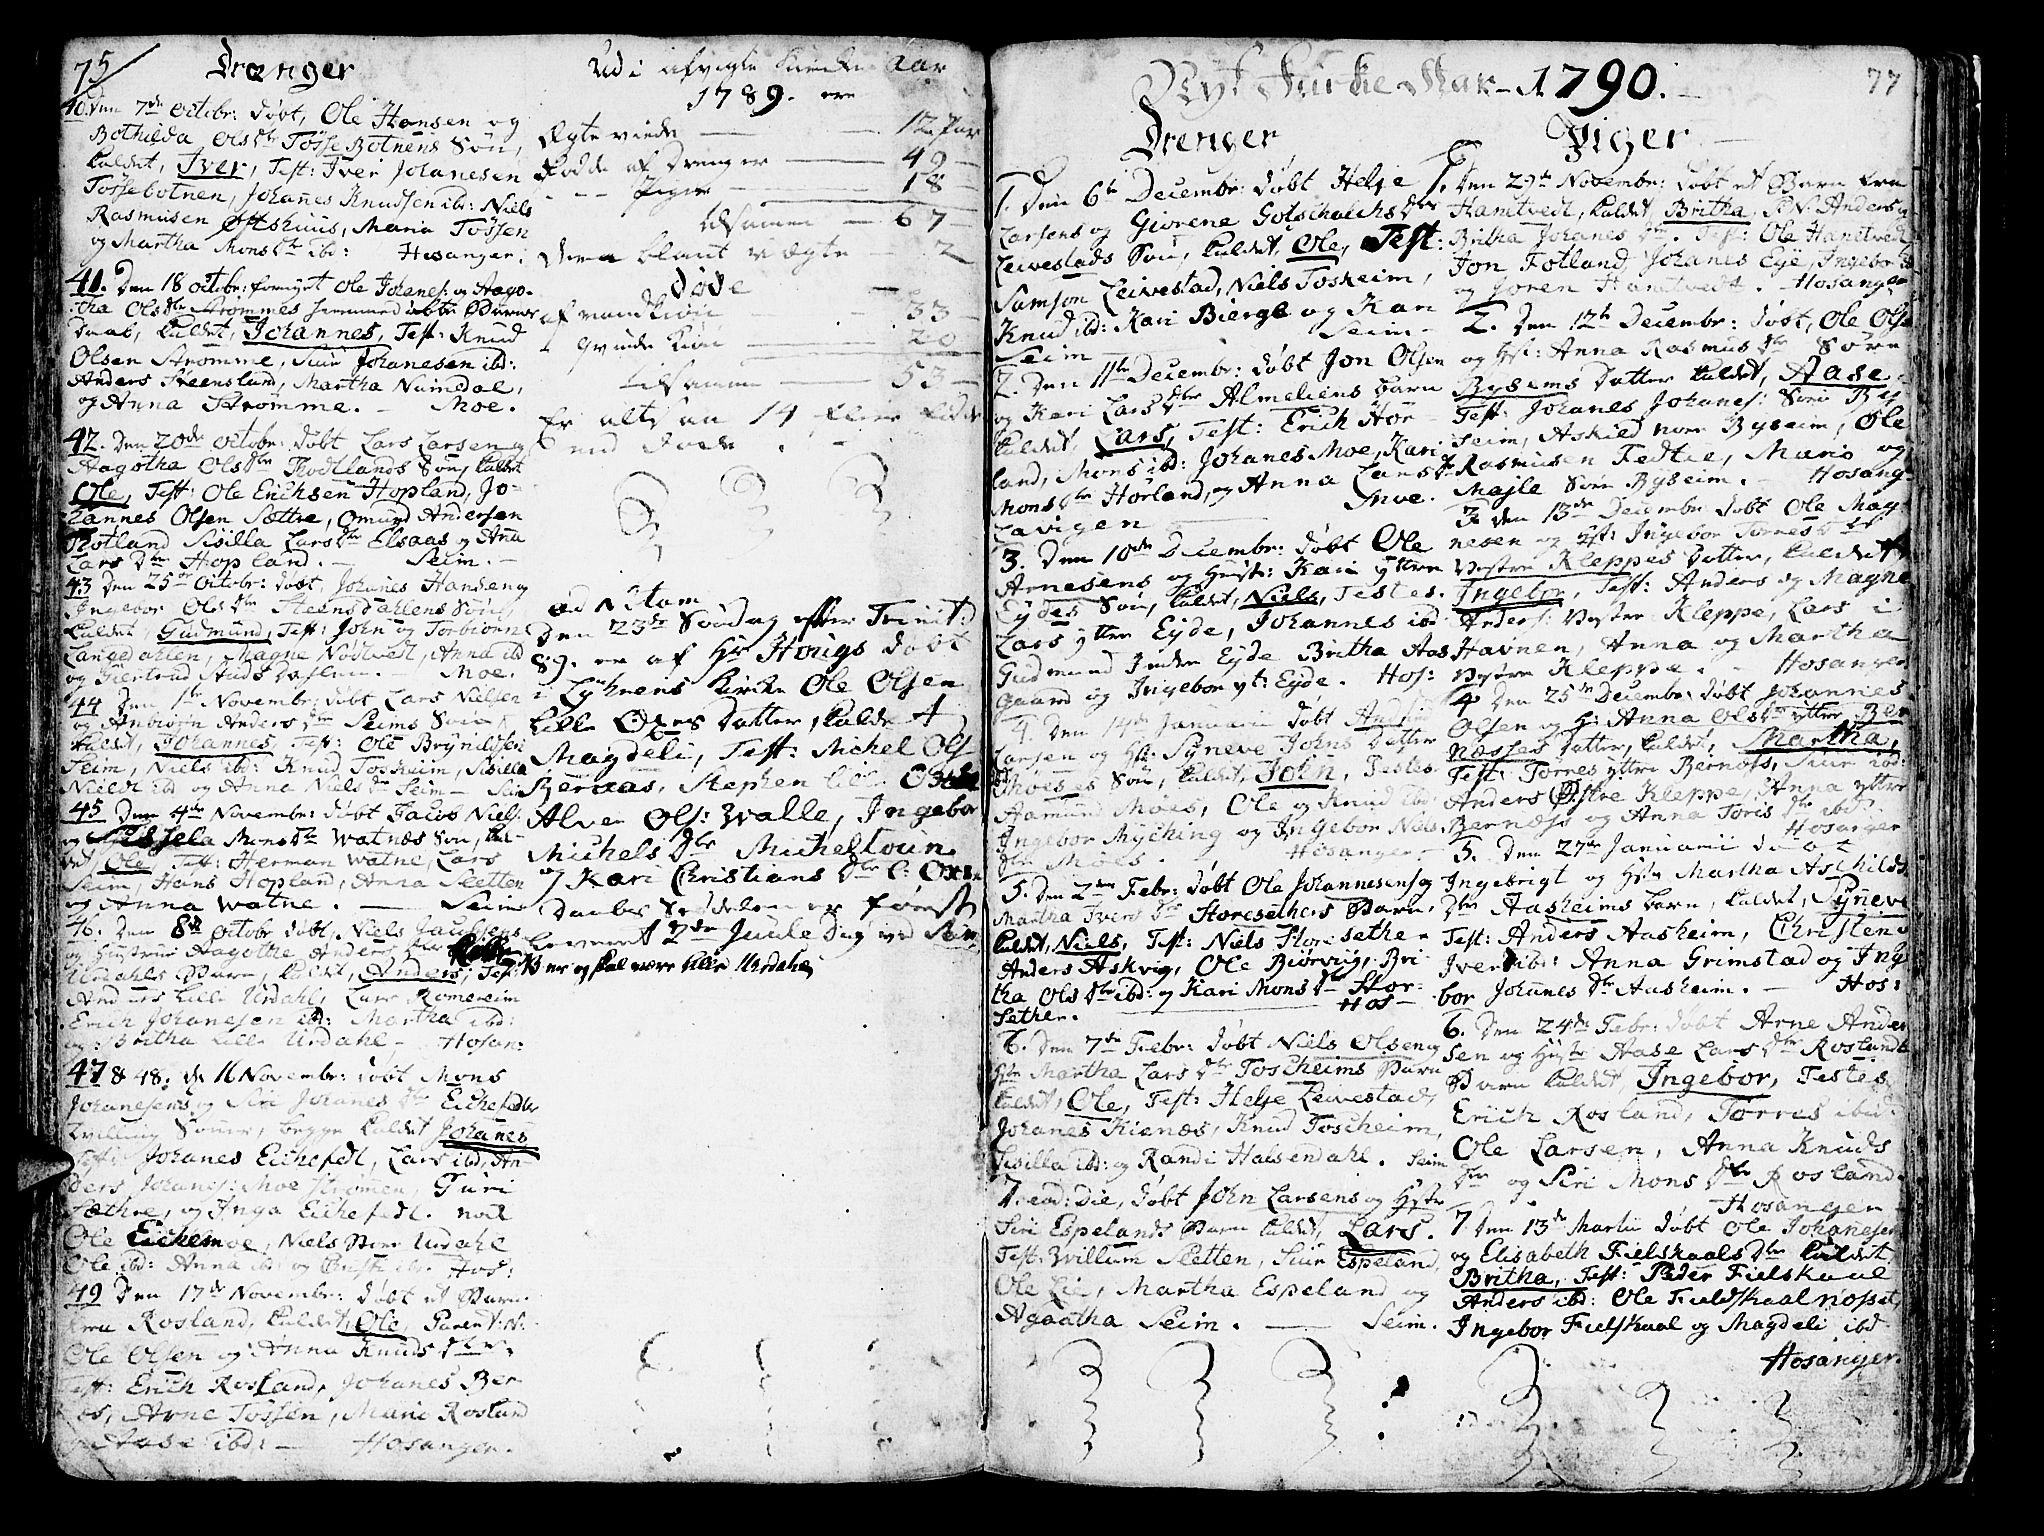 75
Drenger
40. Den 7de Octobr: døbt, Ole Hansen og
Bothilda Ols Dtr Tøsse Botnens Søn,
kaldet, Iver, Test: Iver Johanesen
Tøssebotnen, Johanes Knudsen ibd: Niels
Rasmusen Østshuus, Maria Tøssen
og Martha Mons Dtr ibd: Hosanger.
41. Den 18 octobr: fornyet Ole Johanes: og Aago-
tha Ols Dtr Strømmes hiemmedøbte Barns
Daab, kaldet, Johannes, Test: Knud
Olsen Strømme, Siur Johanesen ibd:
Anders Steensland, Martha Numdal,
og Anna Strømme. - Moe.
42. Den 20de octobr: døbt Lars Larsen og
Aagotha Ols Dtr Rodtlands Søn, kaldet
Ole, Test: Ole Erichsen Hopland, Jo-
hannes Olsen Sættre, Omund Andersen
Rotland Sisilla Lars Dtr Elsaas og Ana
Lars Dtr Hopland. - Seim. -
43 Den 25de Octobr: døbt, Johanes Hansen og
Ingebor Ols Dtr Steensdahlens Søn,
kaldet, Gudmund, Test: John og Torbiørn
Langedahlen, Magne Nødtvedt, Anna ibd
og Giertrud - Moe.
44 Den 1te November: døbt Lars Nielsen
og Anbiørn Anders Dtr Seims Søn,
kaldet, Johannes, Test: Ole Brynildsen
Seim, Niels ibd: Knud Toskeim, Sisilla
ibd og Anna Niels Dtr Seim - Seim
45 Den 4de Novembr: døbt Jacob Niels:
og Sissela Mons Dtr Watnæs Søn, kal-
det, Ole, Test: Herman Watne, Lars
Seim, Hans Hopland, Anna Sletten
og Anna Watne. - Seim
46. Den 8de Octobr døbt, Niels
og Hustrue Aagothe Anders Dtr Lille
Urdahls Barn, kaldet, Anders, Test:
Anders Lille Urdahl, Lars Romereim
Erich Johanesen ibd: Martha ibd:
og Britha Lille Urdahl, - Hosan:
47 & 48. d. 16 Novembr: døbt Mons
Johanesens og Siri Johanes Dtr Eichefedts
Tvilling Sønner, begge kaldet Johanes
Test: Johanes Eichefedt, Lars ibd, An-
ders Johanes: Moe Strømen, Guri
Sæthre, og Inga Eichefedt. nok
Ole Eickemoe, Niels Store Urdahl
Ole ibd: Anna ibd: og ibd: Hos:
49 Den 17de Novembr: døbt et Barn
fra Rosland, kaldet, Ole, Parent: N:
Ole Olsen og Anna Knuds Dtr,
Test: Erich Rosland, Johanes Ber
næs, Arne Tossen, Mari Rosland
og Aase ibd: - Hosanger.
Udi afvigte Kirke Aar
1789. ere
Ægteviede - 12 Par
Fødde af Drenger - 49 -
- - Piger - 18 -
tilsamen - 67 -
Deraf blant uægte - 2
Døde
af Mandkiøn - 33 -
- Qvindekiøn - 20
tilsammen - 53 -
Er altsaa 14 fleere fødde
end døde.
ad Notam
Den 23de Søndag efter Trinit:
89. er af Hr Honigs døbt
i Lychrens Kirke Ole Olsen
Lille Oxes Datter, kaldet
Magdeli, Test: Michel Ols
Bernaas, Stephen lille Oxe
Alver Ols: Walle, Ingebor
Michels Dtr Micheltoun
og Kari Christians Dtr l: Oxe.
Daabs Sedelen er først
leveret 2den Juule Dag ved Seim
NB er og skal være Lille Urdahl
77
Nyt Kirke Aar - 1790. -
Drenger
1. Den 6te Decembr: døbt Helje
Larsens og Giørene Gotschalchs Dtr
Leivestads Søn, kaldet, Ole, Test:
Samson Leivestad, Niels Toskeim,
Knud ibd: Kari Bierge og Kari
Seim - Seim -
2. Den 11te Decembr: døbt Jon Olsen
og Kari Lars Dtr Almeliens Barn
kaldet, Lars, Test: Erich Hor-
land, Mons ibd: Johanes Moe, Kari
Mons Dtr Horland, og Anna Lars Dtr
Lavigen - Moe.
3. Den 18de Decembr: døbt Ole
Arnesens og Hust: Kari yttre
Eydes Søn, kaldet, Niels, Testes.
Lars yttre Eyde, Johannes ibd
Gudmund Indre Eyde Britha Aas
gaard og Ingebor yt: Eyde. Hos:
4. Den 14de Januarii døbt Anders
Larsen og Hst: Syneve Johns Datter
Moeses Søn, kaldet, John, Testes.
Aamund Moes, Ole og Knud ibd:
Ingebor Myching og Ingebor Niels
Dtr Moes. Hosanger. -
5. Den 2den Febr: døbt Ole Johannesens og
Martha Ivers Dtr Storesethers Barn,
kaldet, Niels, Test: Niels Storesether
Anders Askvig, Ole Biørvig, Bri-
tha Ols Dtr ibd: og Kari Mons Dtr Stor-
sether. - Hos -
6. Den 7de Febr: døbt Niels Olsen og
Hstr Martha Lars Dtr Toscheims Barn
kaldet, Ole, Test: Helje Leivestad,
Johanes Kienæs, Knud Toscheim,
Sisilla ibd: og Randi Halsendahl. Seim
7. eod: die, døbt John Larsens og Hstr
Siri Espelands Barn kaldet, Lars.
Test: Willum Sletten, Siur Espeland,
Ole Lie, Martha Espeland og
Agaatha Seim. - Seim.
Piger -
1. Den 29de Novembr: døbt et Barn fra
Hantvedt, kaldet, Britha, P.N. Anders og
Britha Johanes Dtr. Test: Ole Hantvedt,
Jon Fotland, Johanes Eye, Ingebor
og Søren Hantvedt. - Hosanger
2. Den 12te Decembr: døbt, Ole Ols
og Hst: Anna Rasmus Dtr Søre
Bysems Datter kaldet, Aase,
Test: Johanes Johanes: Søre By-
seim, Askild nore Byseim, Ole
Rasmusen Tedtie, Mari og
Majle Søre Byseim. - Hosang
3. Den 13de Decembr døbt Ole Mag-
nesen og Hst: Ingebor Torres Dtr
Vestre Kleppes Datter, kaldet
Ingebor, Test: Anders og Magne
Anders: Vestre Kleppe, Lars i
Havnen, Anna og Martha
Vestre Kleppe. - Hosanger
4 Den 25de Decembr: døbt Johannes
Olsen og H: Anna Ols Dtr yttre Ber
næsses Datter, kaldet, Martha,
Test: Torres yttre Bernæs, Siur ibd:
Anders Østre Kleppe, Anna yttre
Bernæss og Anna Toris Dtr ibd
Hosanger
5. Den 27de Januarii døbt
Ingebrigt og Hstr Martha Aschilds
Dtr Aasheims barn, kaldet, Syneve
Test: Anders Aasheim, Christen
Iver ibd: Anna Grimstad og Inge
bor Johanes Dtr Aasheim. - Hos:
6. Den 24de Febr: døbt Arne Ander
sen og Hustr Aase Lars Dtr Roslands
Barn kaldet, Ingebor, Testes
Erich Rosland, Torres ibid:
Ole Larsen, Anna Knuds
Dtr og Siri Mons Dtr Rosland.
Hosanger
7 Den 13de Martii døbt Ole Johanesen
og Elisabeth Fielskaals Dtr kaldet
Britha, Test: Peder Fielskaal
Anders ibd: Ole Fieldskaal nopset,
Ingebor Fielskaal og Magdeli ibd
Hosanger.